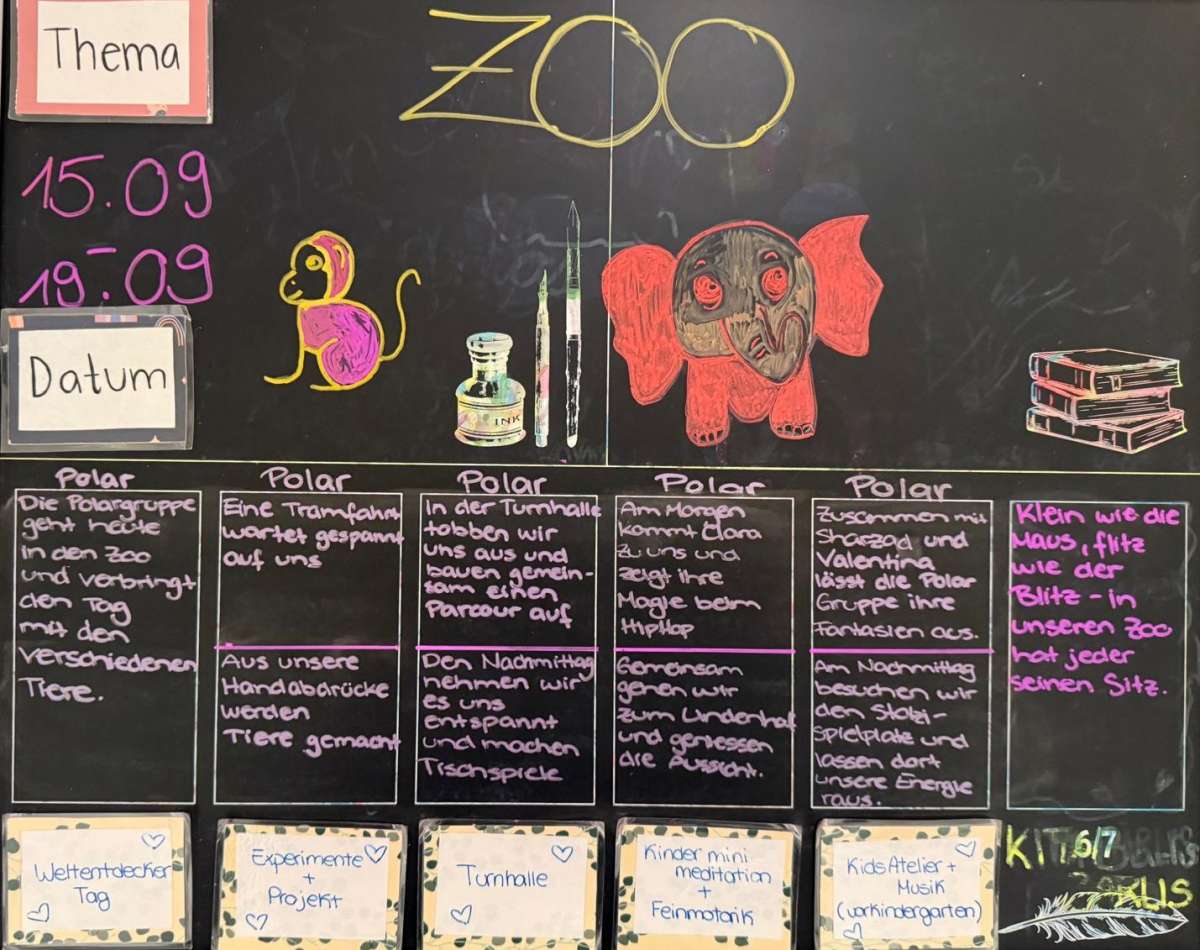 Thema
ZOO
15.09
-
19.09
Datum
Polar
Die Polargruppe
geht heute
in den Zoo
und verbringt
den Tag
mit den
verschiedenen
Tiere.
Weltentdecker
Tag
Polar
Eine Tramfahrt
wartet gespannt
auf uns
Aus unsere
Handabdrücke
werden
Tiere gemacht
Experimente
+
Projekt
Polar
In der Turnhalle
tobben wir
uns aus und
bauen gemein-
sam einen
Parcour auf
Den Nachmittag
nehmen wir
es uns
entspannt
und machen
Tischspiele
Turnhalle
Polar
Am Morgen
kommt Clara
zu uns und
zeigt ihre
Magie beim
HipHop
Gemeinsam
gehen wir
zum Lindenhof
und geniessen
die Aussicht.
Kinder mini
meditation
+
Feinmotorik
Polar
Zusammen mit
Sharzad und
Valentina
lässt die Polar
Gruppe ihre
Fantasien aus.
Am Nachmittag
besuchen wir
den Stolzi-
spielplatz und
lassen dort
unsere Energie
raus.
Kids Atelier +
Musik
(vorkindergarten)
Klein wie die
Maus, flitz
wie der
Blitz - in
unseren Zoo
hat jeder
seinen Sitz.
INK
6/7